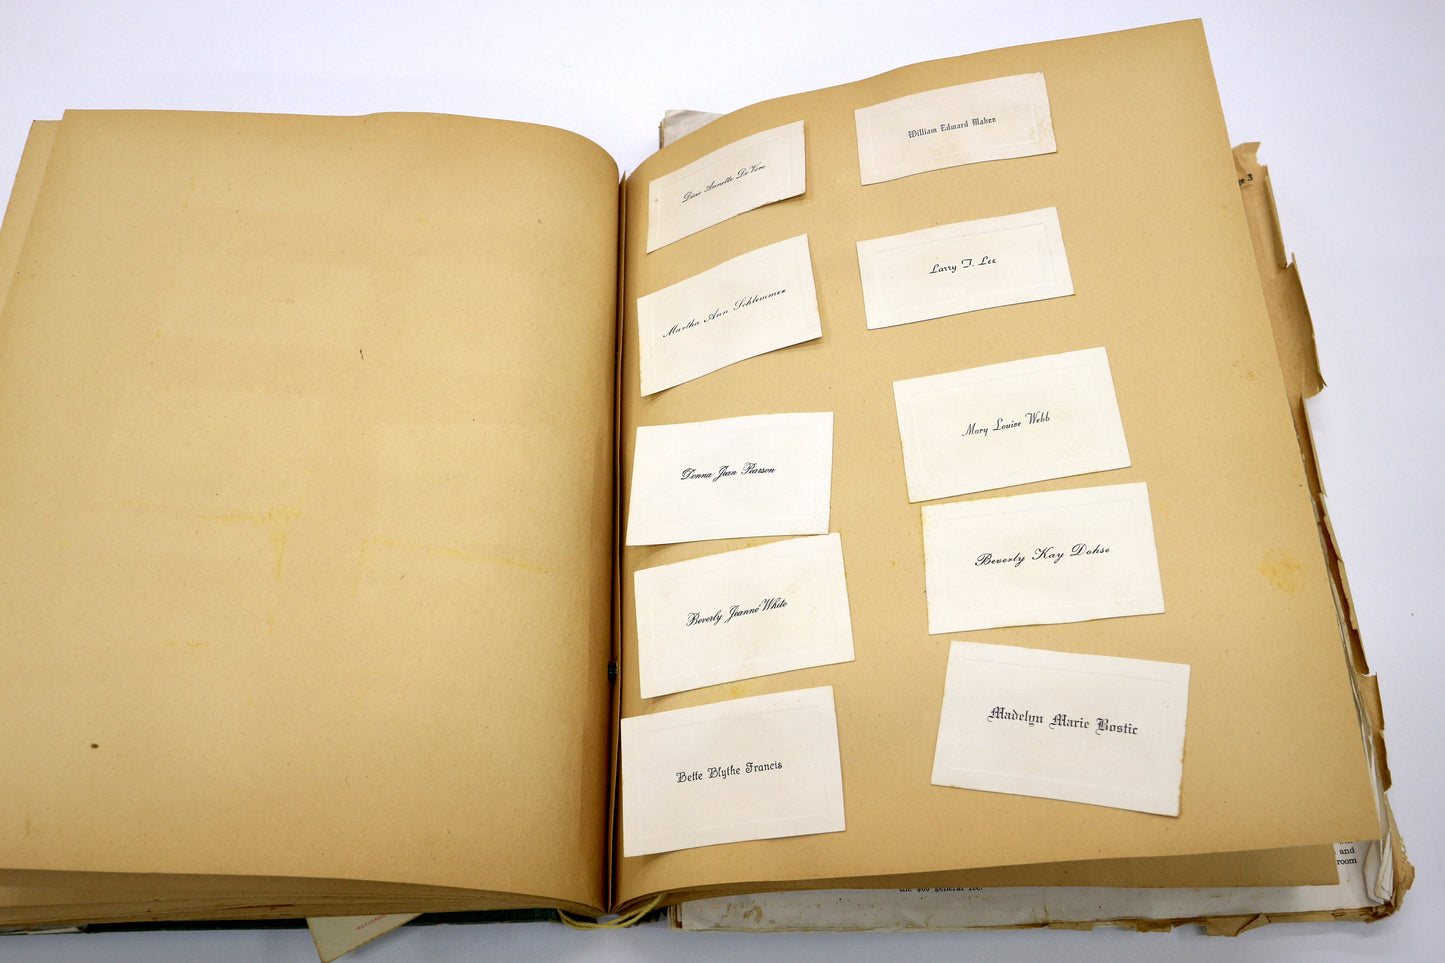 Annette De Vere
William Edward Mabee
Martha Ann Schlemmer
Larry F. Lee
Donna Jean Pearson
Mary Louise Webb
Beverly Jeanne White
Beverly Kay Dohse
Bette Blythe Francis
Madelyn Marie Bostic
3
and
room
general fee.